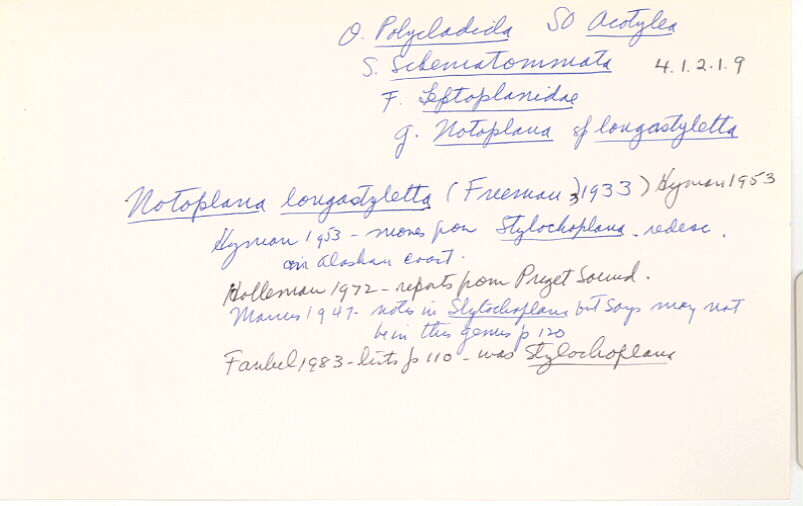 O. Polycladida SO Acotylea
S. Schematommata 4.1.2.1.9
F. Leptoplanidae
g. Notoplana sp longastyletta
Notoplana longastyletta (Freeman, 1933) Hyman 1953
Hyman 1953 - moves from Stylochoplana. redesc.
Alaskan coast.
Holleman 1972 - reports from Puget Sound.
Marcus 1947 - notes in Stylochoplana but says may not
be in this genus p 120
Faubel 1983 - lists p 110 - was Stylochoplana